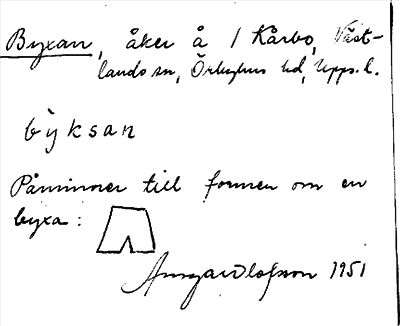 Byxan, åker å 1 Kårbo, Väst-
lands sn, Örbyhus hd, Upps. l.
bỳksan
Påminner till formen om en
byxa:
Olofsson 1951